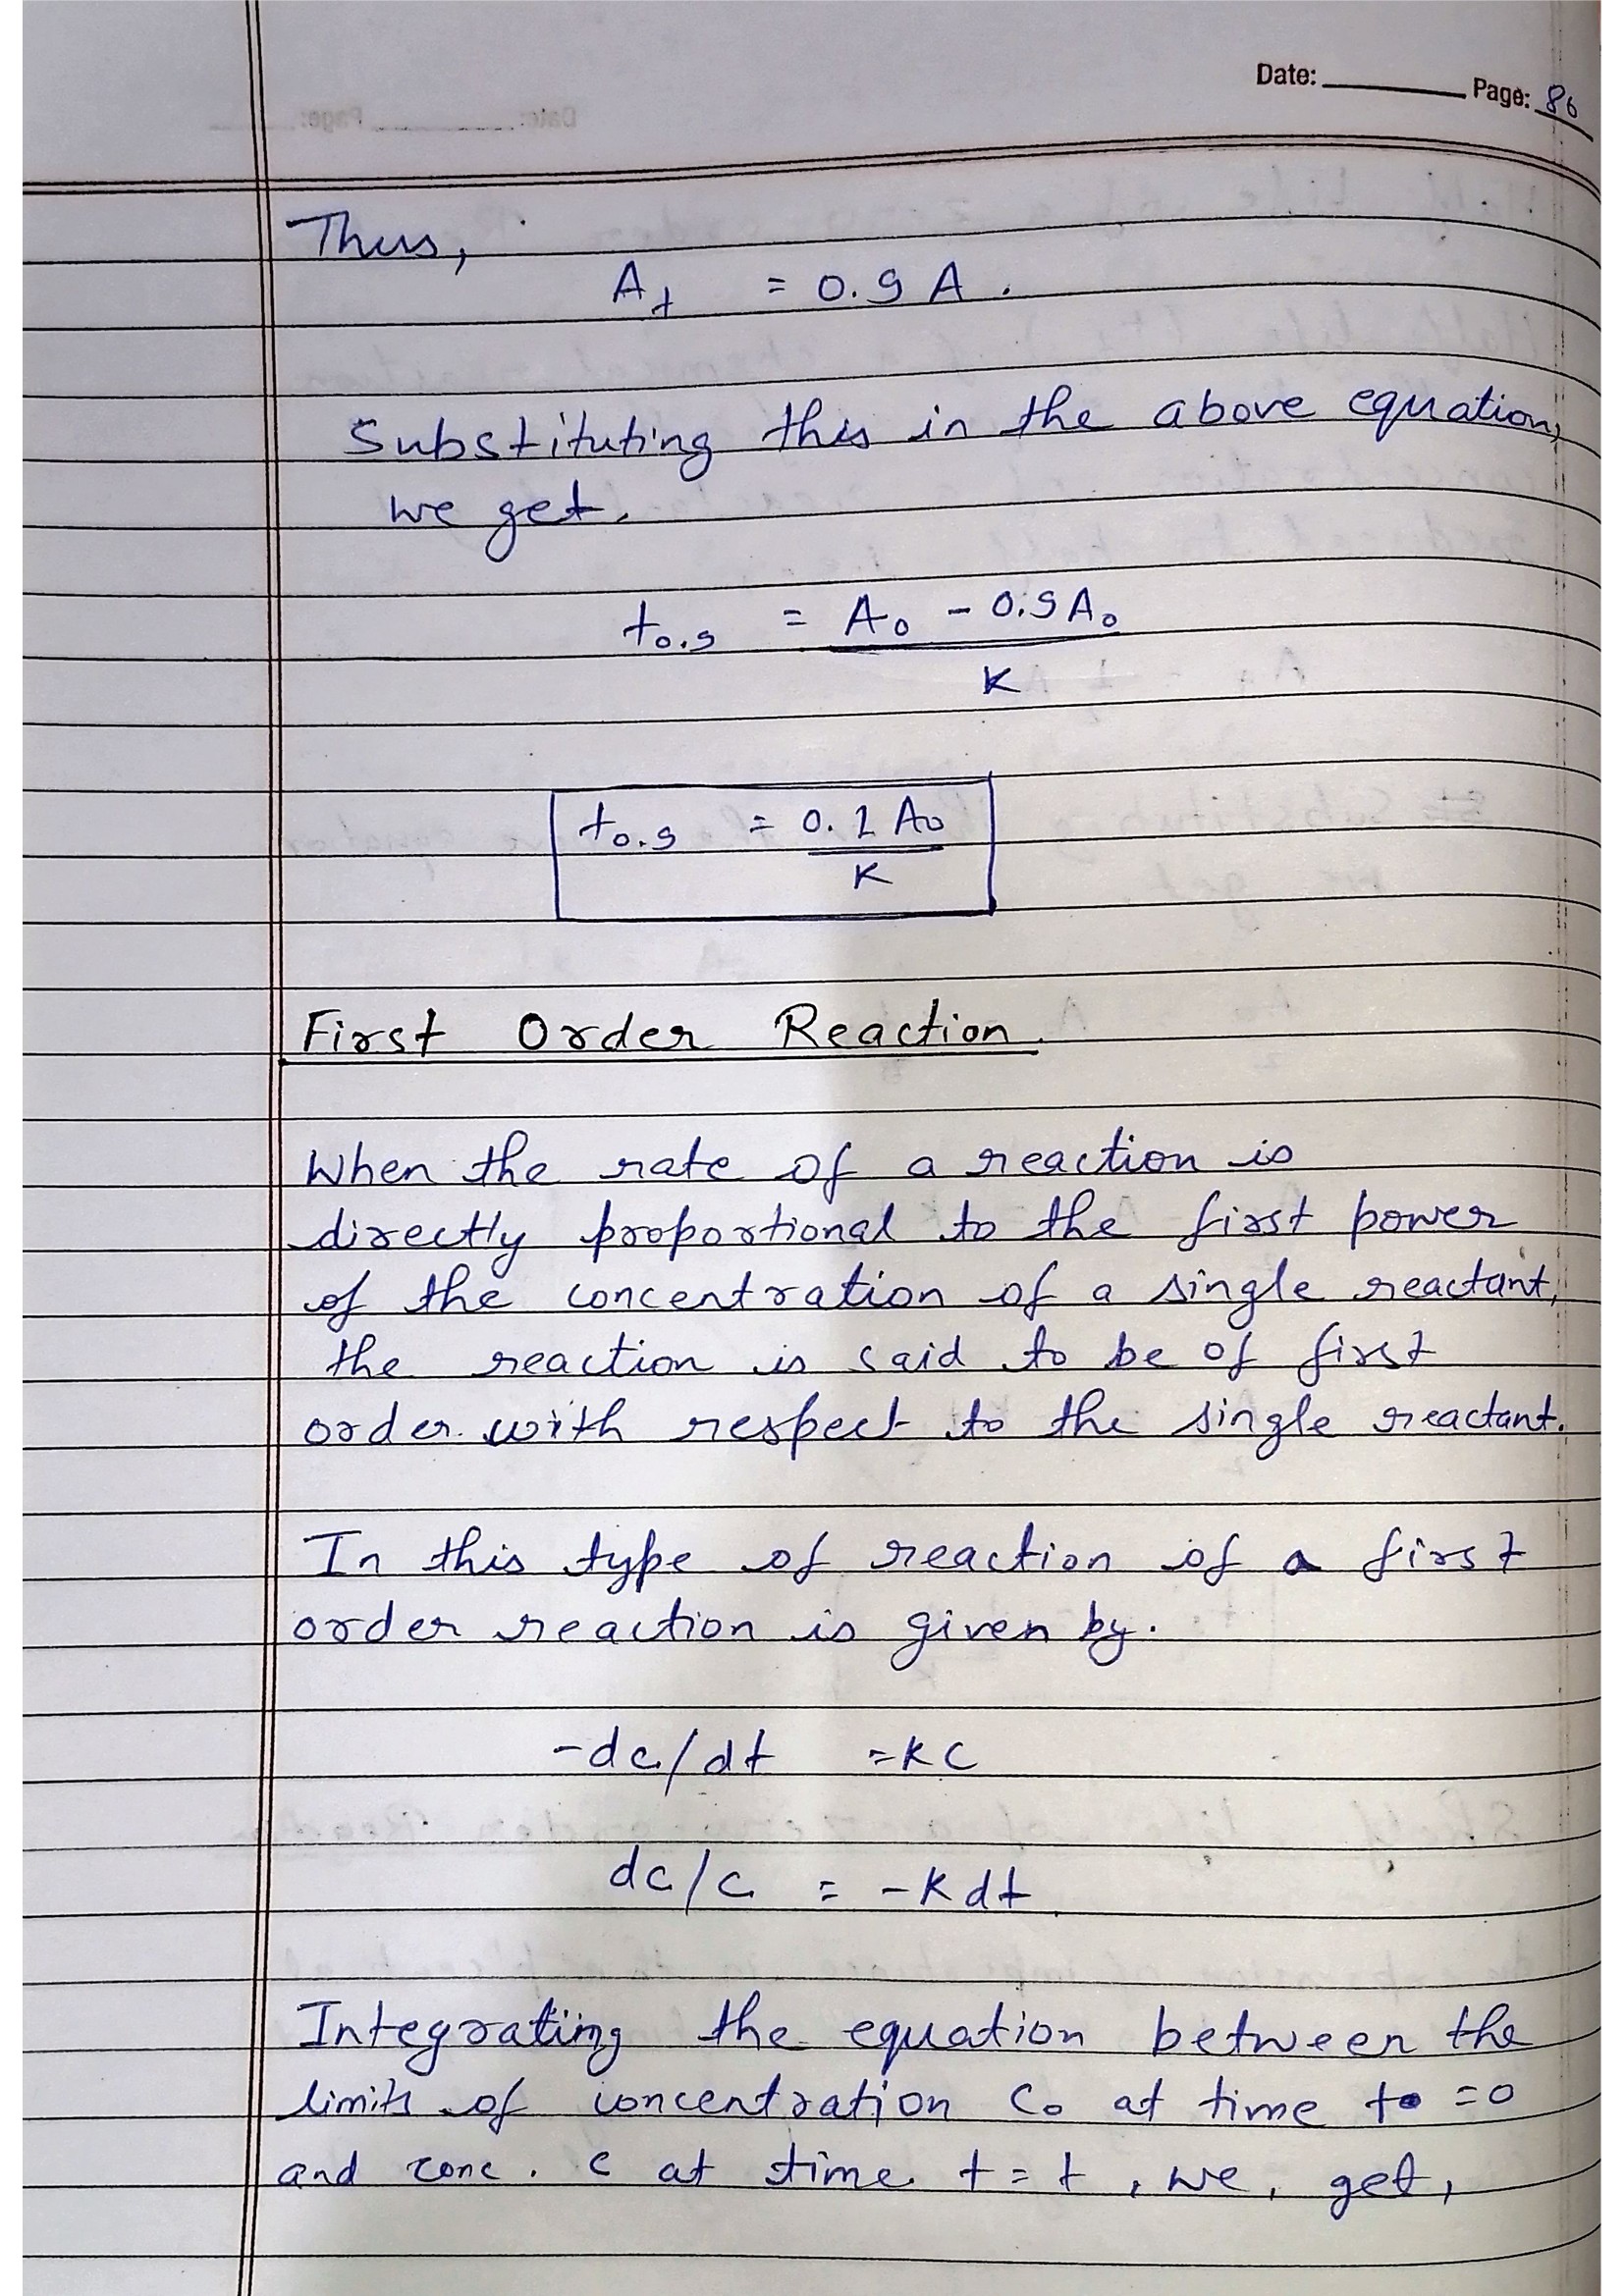 Date: Page: 86
Thus,
At = 0.9 A.
Substituting this in the above equation,
we get.
t0.9 = A0 - 0.9A0
K
t0.9 = 0.1 A0
K
First Order Reaction.
When the rate of a reaction is
directly proportional to the first power
of the concentration of a single reactant,
the reaction is said to be of first
order with respect to the single reactant.
In this type of reaction of a first
order reaction is given by.
-dc/dt = KC
dc/c = -Kdt
Integrating the equation between the
limits of concentration C0 at time t = 0
and conc. c at time t = t, we, get,